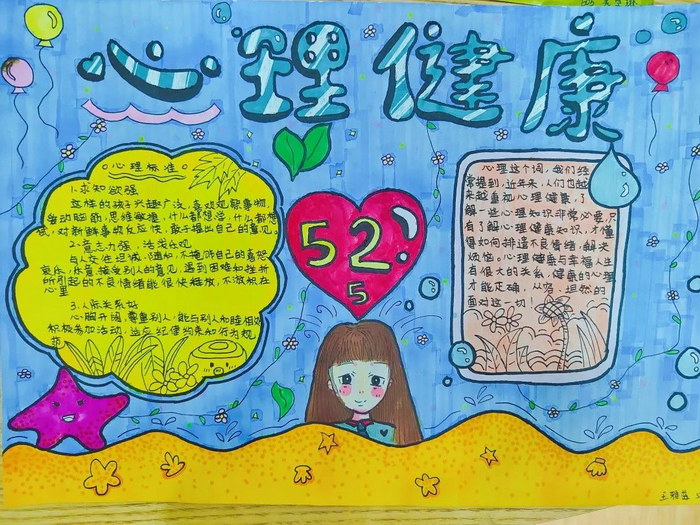 心理健康
心理标准
1.求知欲强
这样的孩子兴趣广泛,喜欢观察事物,
爱动脑筋,思维敏捷,什么都想学,什么都想
试,对新鲜事物反应快,敢于提出自己的意见。
2.意志力强,活泼乐观
与人交往坦诚,随和,不掩饰自己的喜怒
哀乐,乐意接受别人的意见,遇到困难和挫折
所引起的不良情绪能很快释放,不淤积在
心里
3.人际关系好
心胸开阔,尊重别人,能与别人和睦相处
积极参加活动,适应纪律约束和行为规
范
52
5
心理这个词,我们经
常提到,近年来,人们也越
来越重视心理健康,了
解一些心理知识非常必要,只
有了解心理健康知识,才懂
得如何排遣不良情绪,解决
烦恼。心理健康与幸福人生
有很大的关系,健康的心理
才能正确、从容、坦然的
面对这一切!